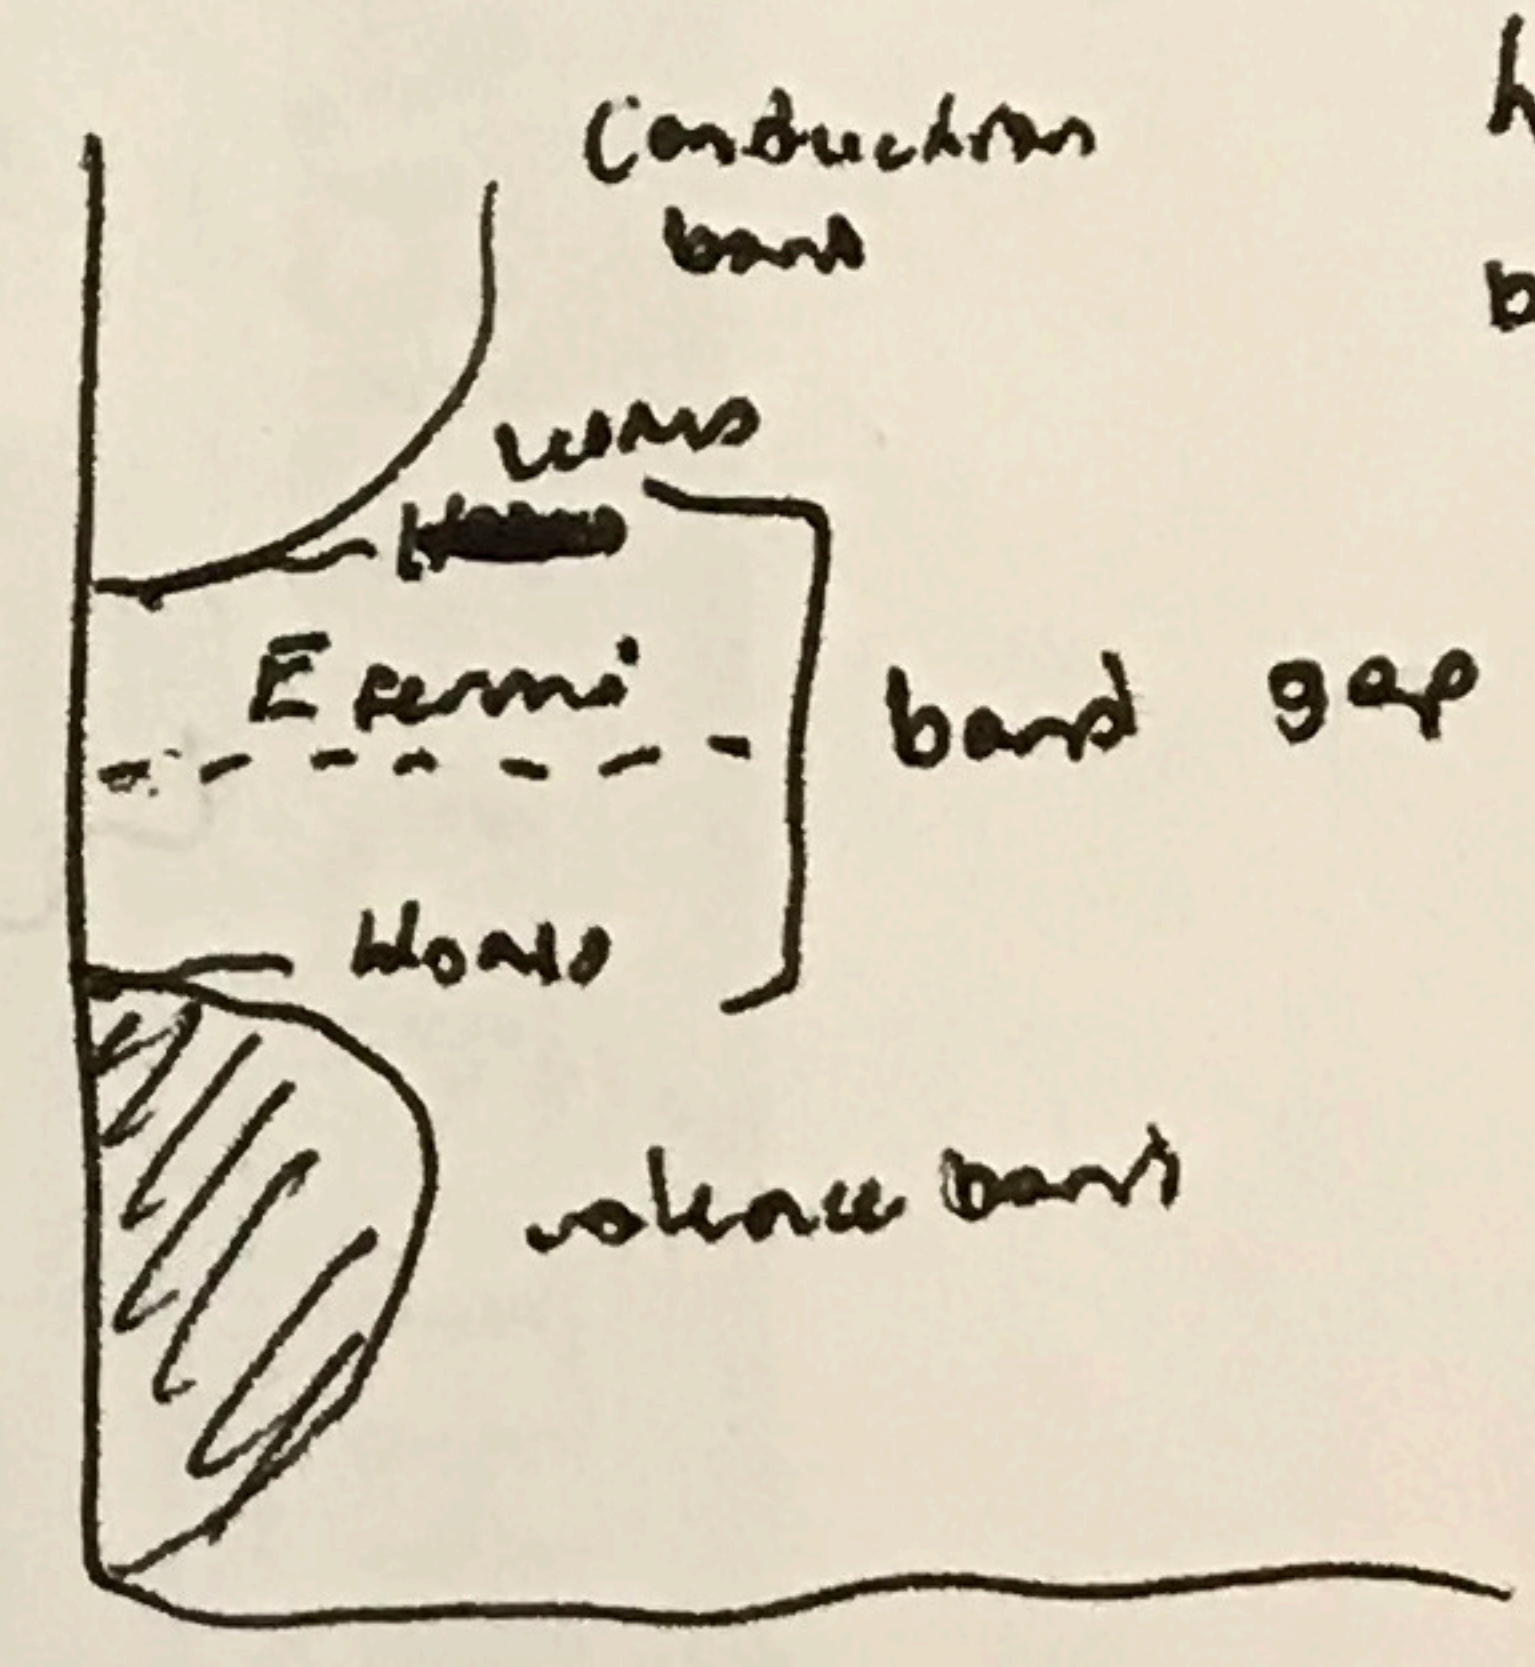 Conduction
band
LUMO
E fermi
band gap
HOMO
valence band
h
b